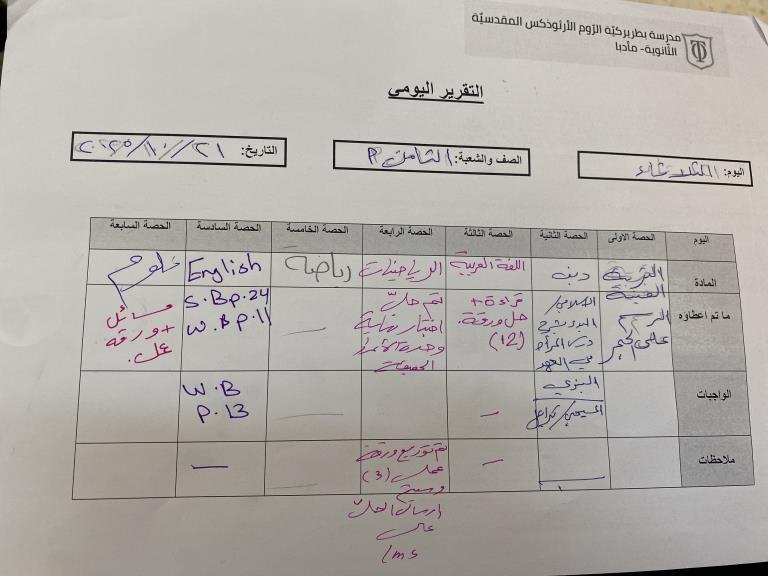 مدرسة بطريركيّة الرّوم الأرثوذكس المقدسيّة
الثّانوية- مأدبا
التقرير اليومي
اليوم: الثلاثاء
الصف والشعبة: الثامن P
التاريخ: ٢١/١٠/٢٠٢٥
اليوم الحصة الاولى الحصة الثانية الحصة الثالثة الحصة الرابعة الحصة الخامسة الحصة السادسة الحصة السابعة
المادة
التربية
الفنية
دين
اللغة العربية
الرياضيات
رياضة
English
علوم
ما تم اعطاؤه
الرسم
على الحجر
الاسلامي/
البدء بشرح
درس المرأة
في العهد
النبوي
المسيحي/
قراءة +
حل ورقة.
(12)
تم حلّ
اختبار نهاية
وحدة الأعداد
الحقيقية
S.B p.24
W.B p.11
مسائل
+ ورقة
عمل.
الواجبات
W.B
p.13
ملاحظات
تم توزيع ورقة
عمل (3)
ارسال الحلّ
على